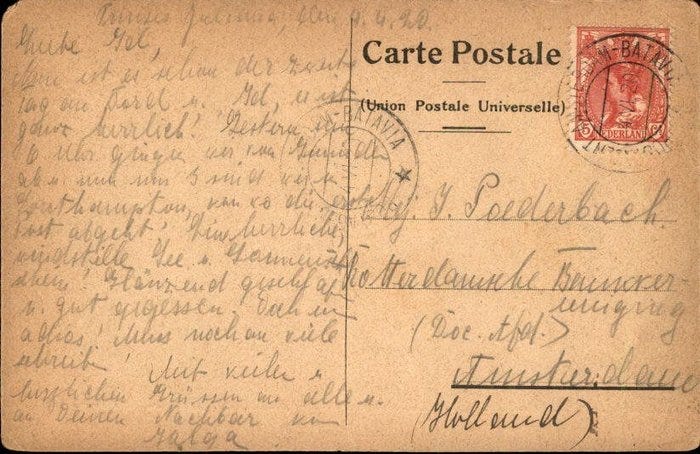 Prinses Juliana, den 9.4.20.
Liebe Gel,
Nun ist es schon der zweite
Tag an Bord u. Gel, es ist
ganz herrlich! Gestern um
6 Uhr gingen wir von
ab u. nun um 3 sind wir in
Southampton, von wo die erste
Post abgeht! Eine herrliche
windstille See u. Sonnen-
schein! Glänzend geschlafen
u. gut gegessen. Doch nun
adios! Muss noch an viele
schreiben!
Mit vielen u.
herzlichen Grüssen an alle u.
an Deinen Nachbar von
Helga
Carte Postale
(Union Postale Universelle)
J. Poederbach.
Rotterdamsche Bank ver-
eeniging
(Doc. Afd.)
Amsterdam
(Holland)
-BATAVIA
AMSTERDAM-BATAVIA
5 CT
NEDERLAND